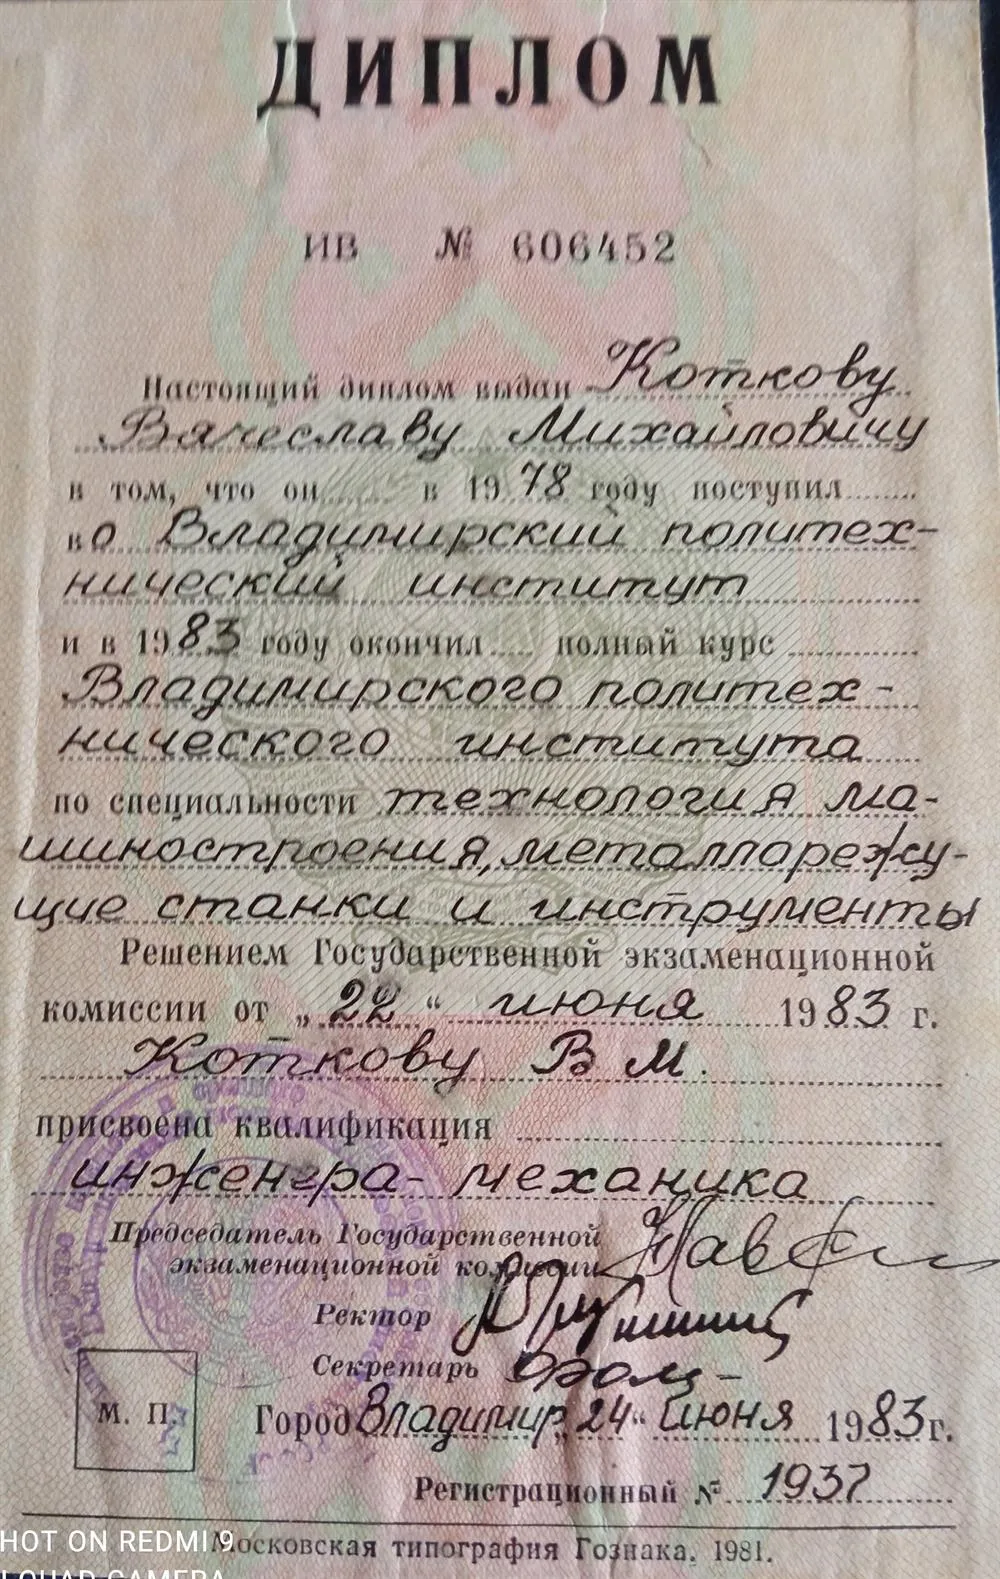 ДИПЛОМ
ИВ № 606452
Настоящий диплом выдан Коткову
Вячеславу Михайловичу
в том, что он в 1978 году поступил
во Владимирский политех-
нический институт
и в 1983 году окончил полный курс
Владимирского политех-
нического института
по специальности технология ма-
шиностроения, металлорежу-
щие станки и инструменты
Решением Государственной экзаменационной
комиссии от „22“ июня 1983 г.
Коткову В М.
присвоена квалификация
инженера-механика
Председатель Государственной
экзаменационной комиссии
Ректор
Секретарь
М. П.
Город Владимир „24“ июня 1983 г.
Регистрационный № 1937
Московская типография Гознака. 1981.
HOT ON REDMI 9
QUAD CAMERA